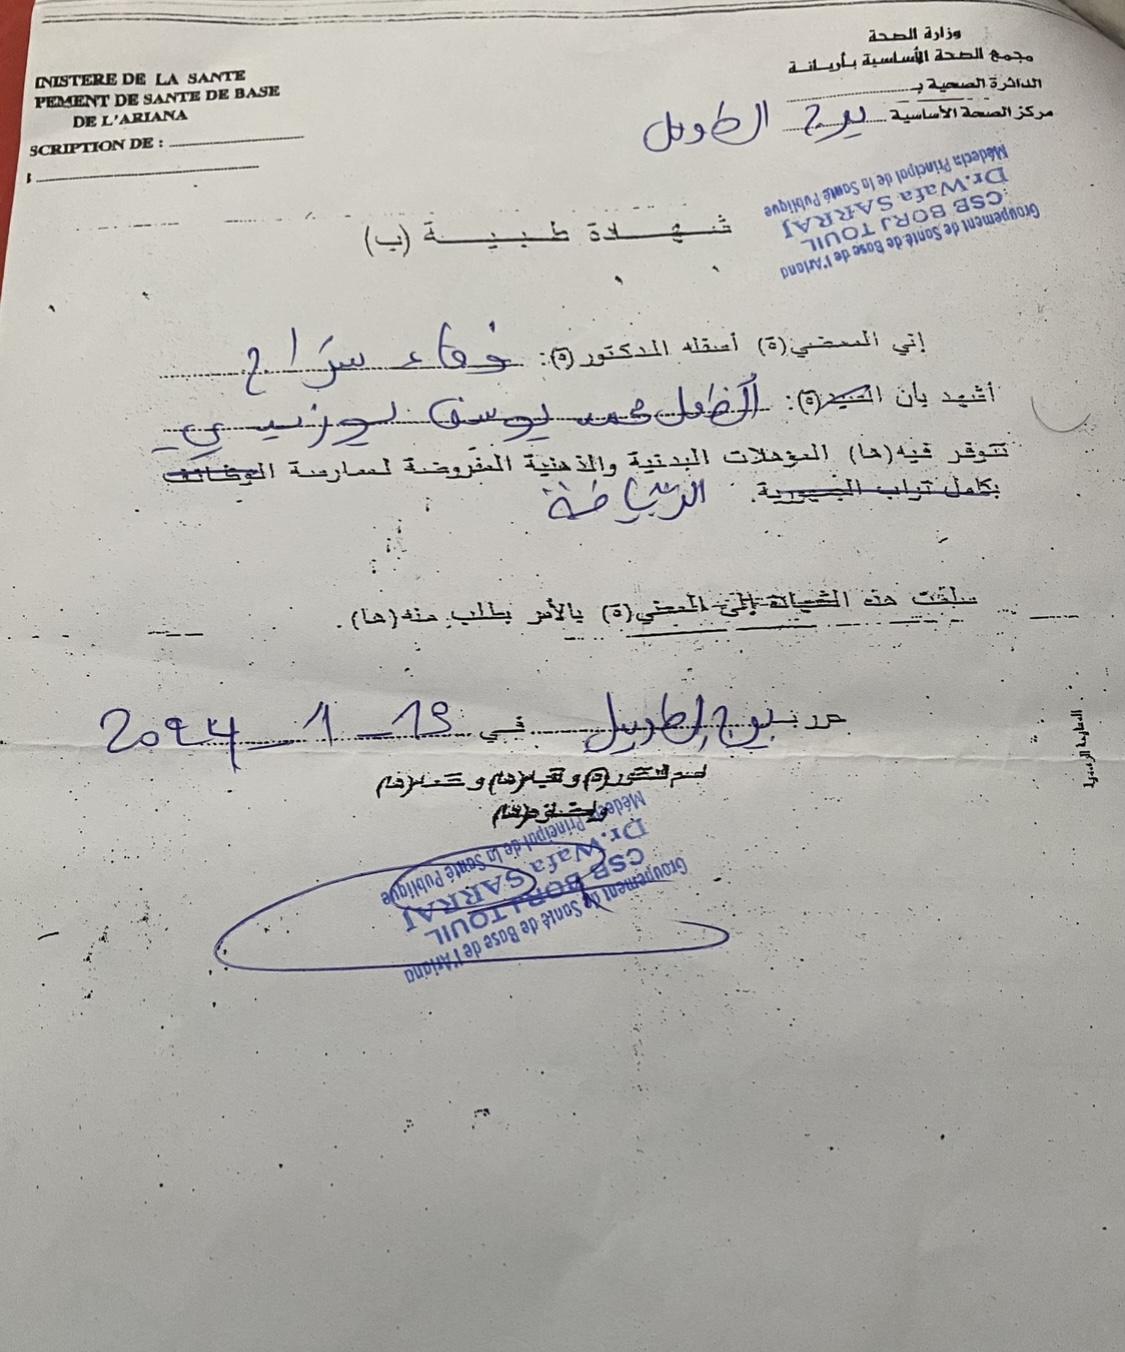 INISTERE DE LA SANTE
PEMENT DE SANTE DE BASE
DE L'ARIANA
SCRIPTION DE :
وزارة الصحة
مجمع الصحة الأساسية بأريانة
الدائرة الصحية بـ
مركز الصحة الأساسية برج الطويل
Groupement de Santé de Base de l'Ariana
CSB BORJ TOUIL
Dr. Wafa SARRAJ
Médecin Principal de la Santé Publique
شهادة طبية (ب)
إني الممضي(ة) أسفله الدكتور(ة): وفاء سرّاج
أشهد بأن السيد(ة): الطفل محمد يوسف
تتوفر فيه(ها) المؤهلات البدنية والذهنية المفروضة لممارسة الوظائف
بكامل تراب الجمهورية. الرّياضة
سلمت هذه الشهادة إلى المعني(ة) بالأمر بطلب منه(ها).
حرر ببرج الطويل في 19 - 1 - 2024
Groupement de Santé de Base de l'Ariana
CSB BORJ TOUIL
Dr. Wafa SARRAJ
Médecin Principal de la Santé Publique